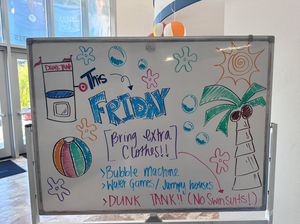 DUNK TANK
This
FRIDAY
Bring extra
Clothes!!
> Bubble machine
> Water Games / Jumpy houses
> DUNK TANK!! (No Swimsuits!)